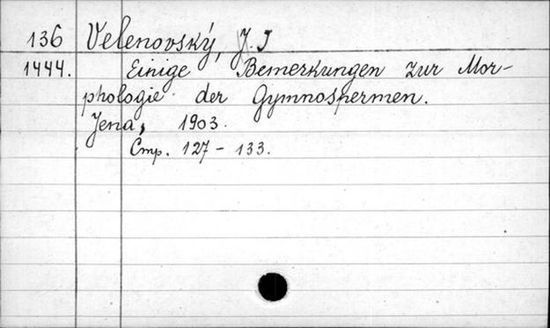 136 Velenovský, J. J
1444. Einige Bemerkungen zur Mor-
phologie der Gymnospermen.
Jena, 1903.
Cmp. 127 - 133.